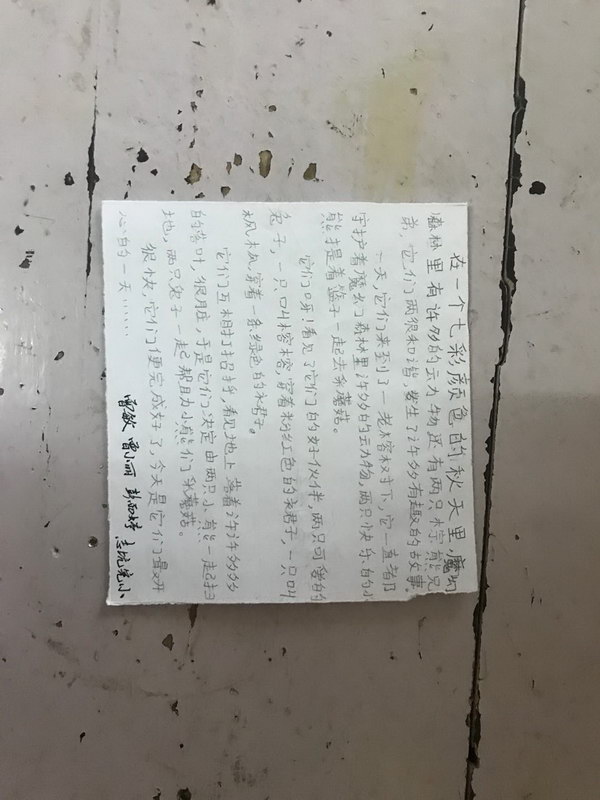 在一个七彩颜色的秋天里,魔幻
森林里有许多的动物还有两只棕熊兄
弟,它们两很和谐,发生了许多有趣的故事。
一天,它们来到了一老榕树下,它一直都
守护着魔幻森林里许多的动物,两只快乐的小
熊提着篮子一起去采蘑菇。
它们呀!看见了它们的好伙伴,两只可爱的
兔子,一只叫榕榕,穿着粉红色的衣君子,一只叫
枫枫,穿着一条绿色的衣君子。
它们互相打招呼,看见地上落着许许多多
的落叶,很月庄,于是它们决定由两只小熊一起扫
地,两只兔子一起帮且力小熊们采蘑菇。
很快,它们便完成好了,今天是它们最开
心的一天……
雷敏 雷小丽